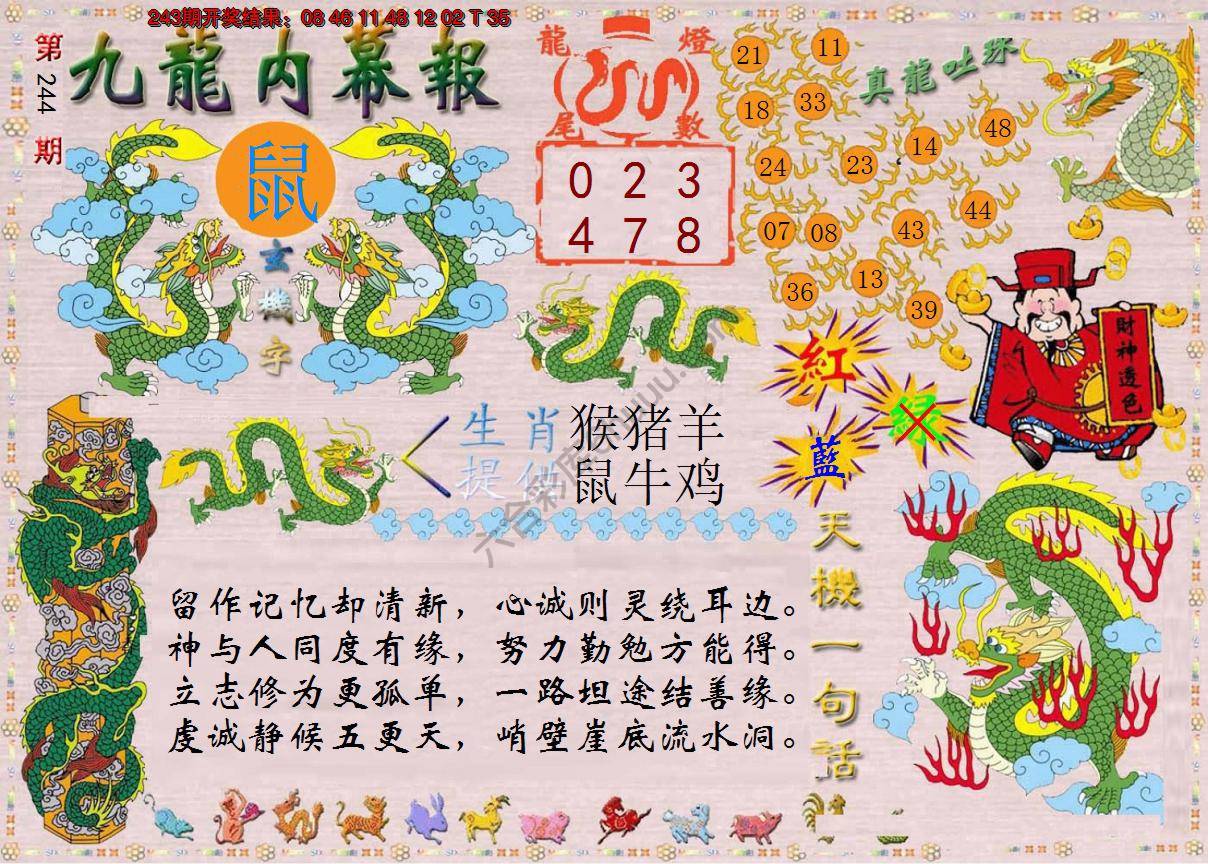 243期开奖结果：08 46 11 48 12 02 T 35
第244期
九龍内幕報
鼠
玄機字
龍燈
尾數
0 2 3
4 7 8
真龍吐珠
21 11
18 33
14 48
24 23
44
07 08 43
13
36 39
財神透色
紅
绿
藍
生肖 猴猪羊
提供 鼠牛鸡
天機一句話
留作记忆却清新，心诚则灵绕耳边。
神与人同度有缘，努力勤勉方能得。
立志修为更孤单，一路坦途结善缘。
虔诚静候五更天，峭壁崖底流水洞。